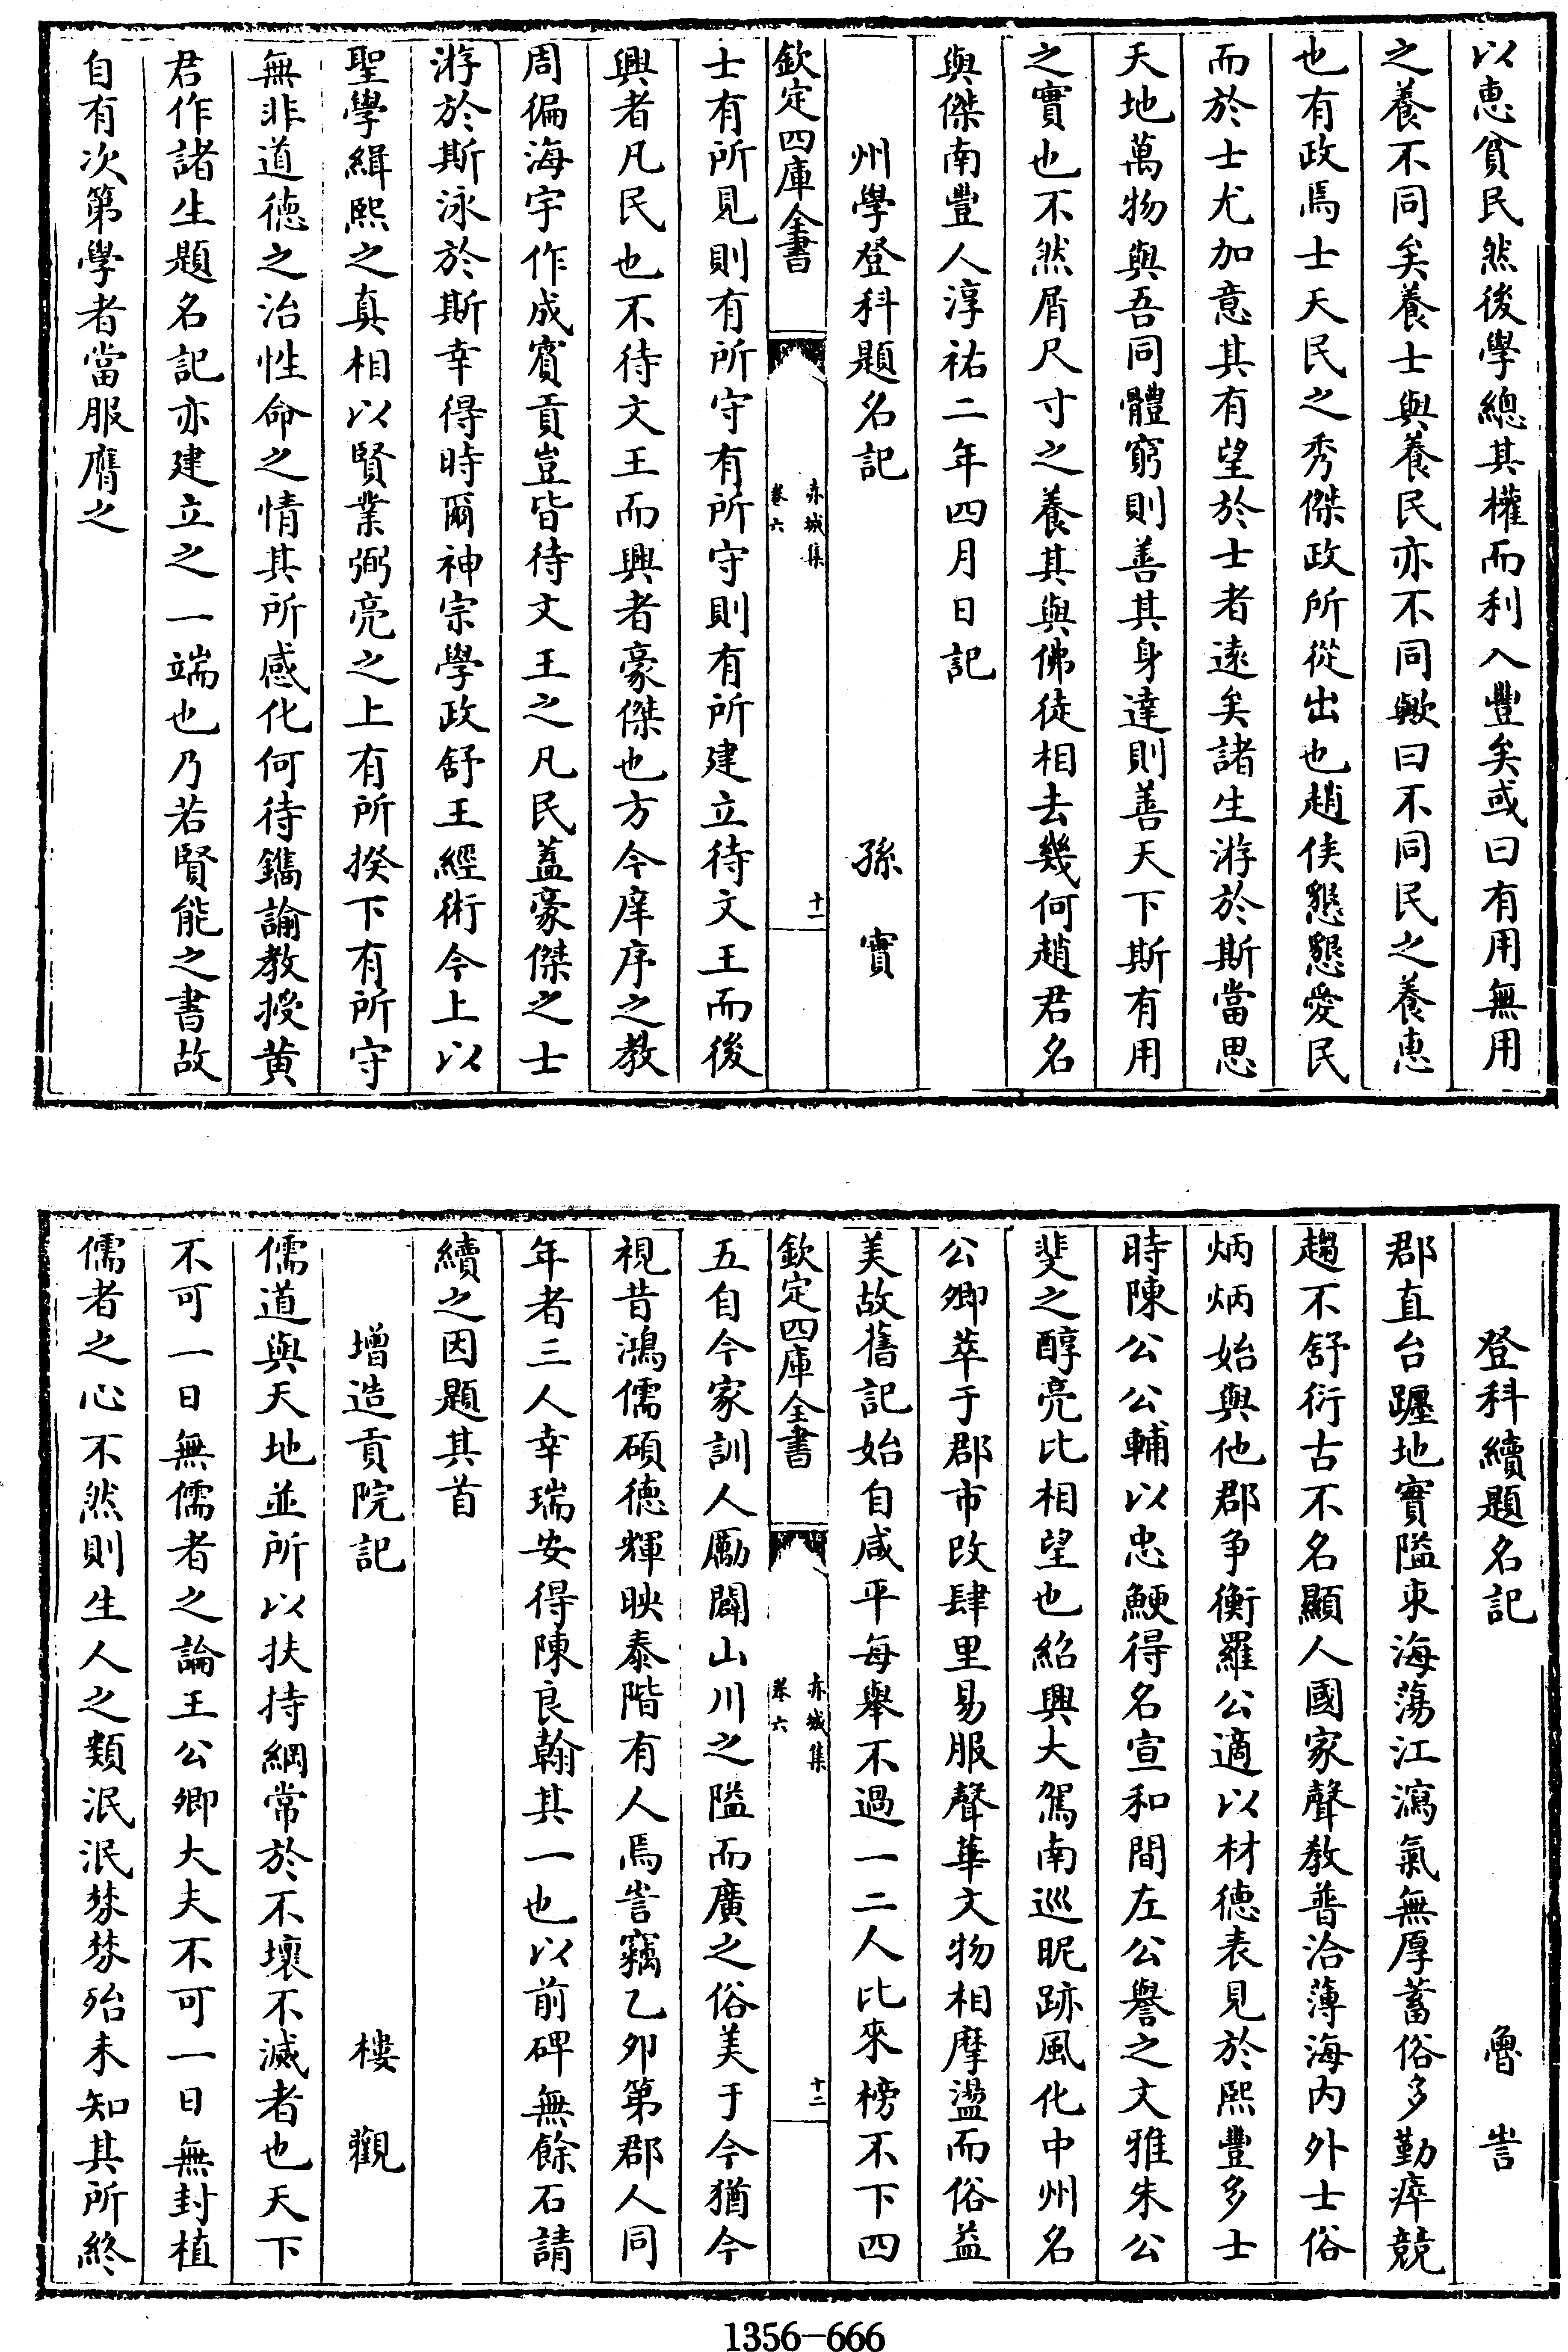 以惠貧民然後學總其權而利入豐矣或曰有用無用
之養不同矣養士與養民亦不同歟曰不同民之養惠
也有政焉士天民之秀傑政所從出也趙侯懇懇愛民
而於士尤加意其有望於士者遠矣諸生游於斯當思
天地萬物與吾同體窮則善其身達則善天下斯有用
之實也不然屑尺寸之養其與佛徒相去幾何趙君名
與傑南豐人淳祐二年四月日記
州學登科題名記 孫實
欽定四庫全書 赤城集 卷六 十一
士有所見則有所守有所守則有所建立待文王而後
興者凡民也不待文王而興者豪傑也方今庠序之教
周徧海宇作成賓貢豈皆待文王之凡民蓋豪傑之士
游於斯泳於斯幸得時爾神宗學政舒王經術今上以
聖學緝熙之真相以賢業弼亮之上有所揆下有所守
無非道德之治性命之情其所感化何待鐫諭教授黄
君作諸生題名記亦建立之一端也乃若賢能之書故
自有次第學者當服膺之
登科續題名記 魯訔
郡直台躔地實隘東海蕩江瀉氣無厚蓄俗多勤瘁競
趨不舒衍古不名顯人國家聲教普洽薄海内外士俗
炳炳始與他郡争衡羅公適以材德表見於熙豐多士
時陳公公輔以忠鯁得名宣和間左公譽之文雅朱公
斐之醇亮比相望也紹興大駕南巡昵跡風化中州名
公卿萃于郡市改肆里易服聲華文物相摩盪而俗益
美故舊記始自咸平每舉不過一二人比來榜不下四
欽定四庫全書 赤城集 卷六 十二
五自今家訓人勵闢山川之隘而廣之俗美于今猶今
視昔鴻儒碩德輝映泰階有人焉訔竊乙卯第郡人同
年者三人幸瑞安得陳良翰其一也以前碑無餘石請
續之因題其首
增造貢院記 樓觀
儒道與天地並所以扶持綱常於不壞不滅者也天下
不可一日無儒者之論王公卿大夫不可一日無封植
儒者之心不然則生人之類泯泯棼棼殆未知其所終
1356-666